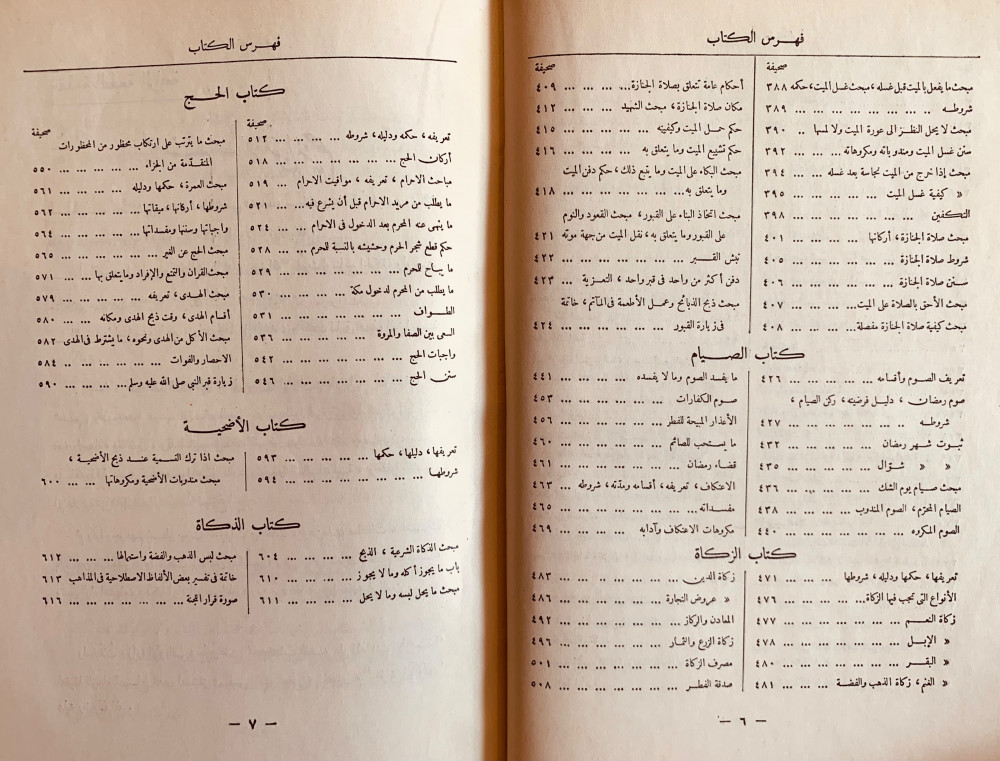 فهرس الكتاب
صحيفة
مبحث ما يفعل بالميت قبل غسله، مبحث غسل الميت، حكمه ٣٨٨
شروطه ... ... ... ... ... ... ... ٣٨٩
مبحث لا يحل النظر الى عورة الميت ولا لمسها .. ٣٩٠
سنن غسل الميت ومندوباته ومكروهاته ... ... ٣٩٢
مبحث إذا خرج من الميت نجاسة بعد غسله ... ٣٩٤
» كيفية غسل الميت ... ... ... ... ٣٩٥
التكفين ... ... ... ... ... ... ... ٣٩٨
مبحث صلاة الجنازة، أركانها ... ... ... ٤٠١
شروط صلاة الجنازة ... ... ... ... ... ٤٠٥
سنن صلاة الجنازة ... ... ... ... ... ٤٠٦
مبحث الأحق بالصلاة على الميت... ... ... ٤٠٧
مبحث كيفية صلاة الجنازة مفصلة... ... ... ٤٠٨
صحيفة
أحكام عامة تتعلق بصلاة الجنازة... ... ... ٤٠٩
مكان صلاة الجنازة، مبحث الشهيد ... ... ٤١٢
حكم حمل الميت وكيفيته ... ... ... ... ٤١٥
حكم تشييع الميت وما يتعلق به ... ... ... ٤١٦
مبحث البكاء على الميت وما يتبع ذلك، حكم دفن الميت
وما يتعلق به... ... ... ... ... ... ٤١٨
مبحث اتخاذ البناء على القبور، مبحث القعود والنوم
على القبور وما يتعلق به، نقل الميت من جهة موته ٤٢١
نبش القبر ... ... ... ... ... ... ٤٢٢
دفن أكثر من واحد فى قبر واحد، التعزية ... ٤٢٣
مبحث ذبح الذبائح وعمل الأطعمة فى المآتم، خاتمة
فى زيارة القبور ... ... ... ... ... ٤٢٤
كتاب الصيام
تعريف الصوم وأقسامه ... ... ... ... ٤٢٦
صوم رمضان، دليل فرضيته، ركن الصيام،
شروطه ... ... ... ... ... ... ٤٢٧
ثبوت شهر رمضان ... ... ... ... ٤٣٢
» » شوّال ... ... ... ... ... ٤٣٥
مبحث صيام يوم الشك ... ... ... ... ٤٣٦
الصيام المحرّم، الصوم المندوب ... ... ... ٤٣٨
الصوم المكروه ... ... ... ... ... ٤٤٠
ما يفسد الصوم وما لا يفسده ... ... ... ٤٤١
صوم الكفارات ... ... ... ... ... ٤٥٣
الأعذار المبيحة للفطر ... ... ... ... ٤٥٦
ما يستحب للصائم ... ... ... ... ... ٤٦٠
قضاء رمضان ... ... ... ... ... ٤٦١
الاعتكاف، تعريفه، أقسامه ومدّته، شروطه ... ٤٦٣
مفسداته... ... ... ... ... ... ٤٦٥
مكروهات الاعتكاف وآدابه ... ... ... ٤٦٩
كتاب الزكاة
تعريفها، حكمها ودليله، شروطها ... ... ٤٧١
الأنواع التى تجب فيها الزكاة... ... ... ٤٧٦
زكاة النعم ... ... ... ... ... ... ٤٧٧
» الإبل ... ... ... ... ... ... ٤٧٨
» البقر ... ... ... ... ... ... ٤٨٠
» الغنم، زكاة الذهب والفضة ... ... ... ٤٨١
زكاة الدين... ... ... ... ... ... ٤٨٣
» عروض التجارة ... ... ... ... ٤٨٦
المعادن والركاز ... ... ... ... ... ٤٩٢
زكاة الزرع والثمار ... ... ... ... ... ٤٩٦
مصرف الزكاة ... ... ... ... ... ٥٠١
صدقة الفطر ... ... ... ... ... ... ٥٠٨
— ٦ —
فهرس الكتاب
كتاب الحج
صحيفة
تعريفه، حكمه ودليله، شروطه ... ... ... ٥١٢
أركان الحج ... ... ... ... ... ... ٥١٨
مباحث الاحرام، تعريفه، مواقيت الاحرام ... ٥١٩
ما يطلب من مريد الاحرام قبل أن يشرع فيه... ٥٢١
ما ينهى عنه المحرم بعد الدخول فى الاحرام ... ٥٢٤
حكم قطع شجر الحرم وحشيشه بالنسبة للمحرم ... ٥٢٨
ما يباح للمحرم ... ... ... ... ... ٥٢٩
ما يطلب من المحرم لدخول مكة ... ... ... ٥٣٠
الطواف ... ... ... ... ... ... ٥٣١
السعى بين الصفا والمروة ... ... ... ... ٥٣٦
واجبات الحج ... ... ... ... ... ٥٤٢
سنن الحج ... ... ... ... ... ... ٥٤٦
صحيفة
مبحث ما يترتب على ارتكاب محظور من المحظورات
المتقدّمة من الجزاء ... ... ... ... ... ٥٥٠
مبحث العمرة، حكمها ودليله ... ... ... ٥٦١
شروطها، أركانها، ميقاتها ... ... ... ... ٥٦٢
واجباتها وسننها ومفسداتها ... ... ... ... ٥٦٤
مبحث الحج عن الغير ... ... ... ... ٥٦٥
مبحث القران والتمتع والإفراد وما يتعلق بها ... ... ٥٧١
مبحث الهدى، تعريفه ... ... ... ... ٥٧٩
أقسام الهدى، وقت ذبح الهدى ومكانه ... ... ٥٨٠
مبحث الأكل من الهدى ونحوه، ما يشترط فى الهدى ٥٨٢
الاحصار والفوات ... ... ... ... ... ٥٨٤
زيارة قبر النبى صلى الله عليه وسلم... ... ... ٥٩٠
كتاب الأضحية
تعريفها، دليلها، حكمها ... ... ... ... ٥٩٣
شروطها ... ... ... ... ... ... ... ٥٩٤
مبحث اذا ترك التسمية عند ذبح الأضحية،
مبحث مندوبات الأضحية ومكروهاتها ... ... ٦٠٠
كتاب الذكاة
مبحث الذكاة الشرعية، الذبح ... ... ... ٦٠٤
باب ما يجوز أكله وما لا يجوز ... ... ... ٦١٠
مبحث ما يحل لبسه وما لا يحل ... ... ... ٦١١
مبحث لبس الذهب والفضة واستعمالها ... ... ... ٦١٢
خاتمة فى تفسير بعض الألفاظ الاصطلاحية فى المذاهب ٦١٣
صورة قرار اللجنة ... ... ... ... ... ... ٦١٦
— ٧ —